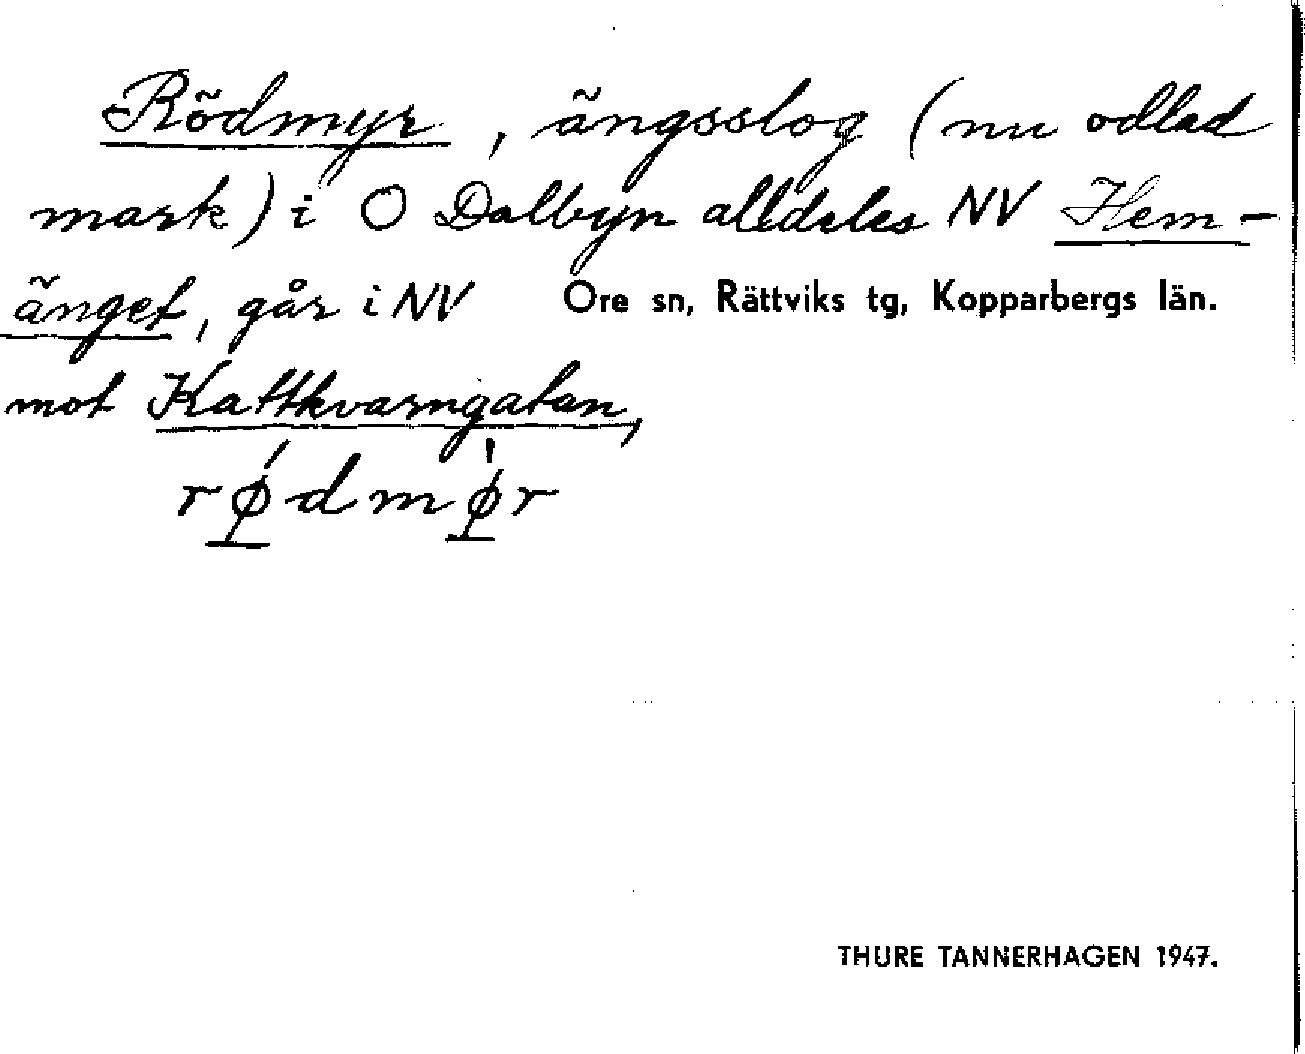 Rödmyr, ängsslog (nu odlad
mark) i O Dalbyn alldeles NV Hem-
änget, går i NV
Ore sn, Rättviks tg, Kopparbergs län.
mot Kattkvarngatan,
rǿdmø̀r
THURE TANNERHAGEN 1947.